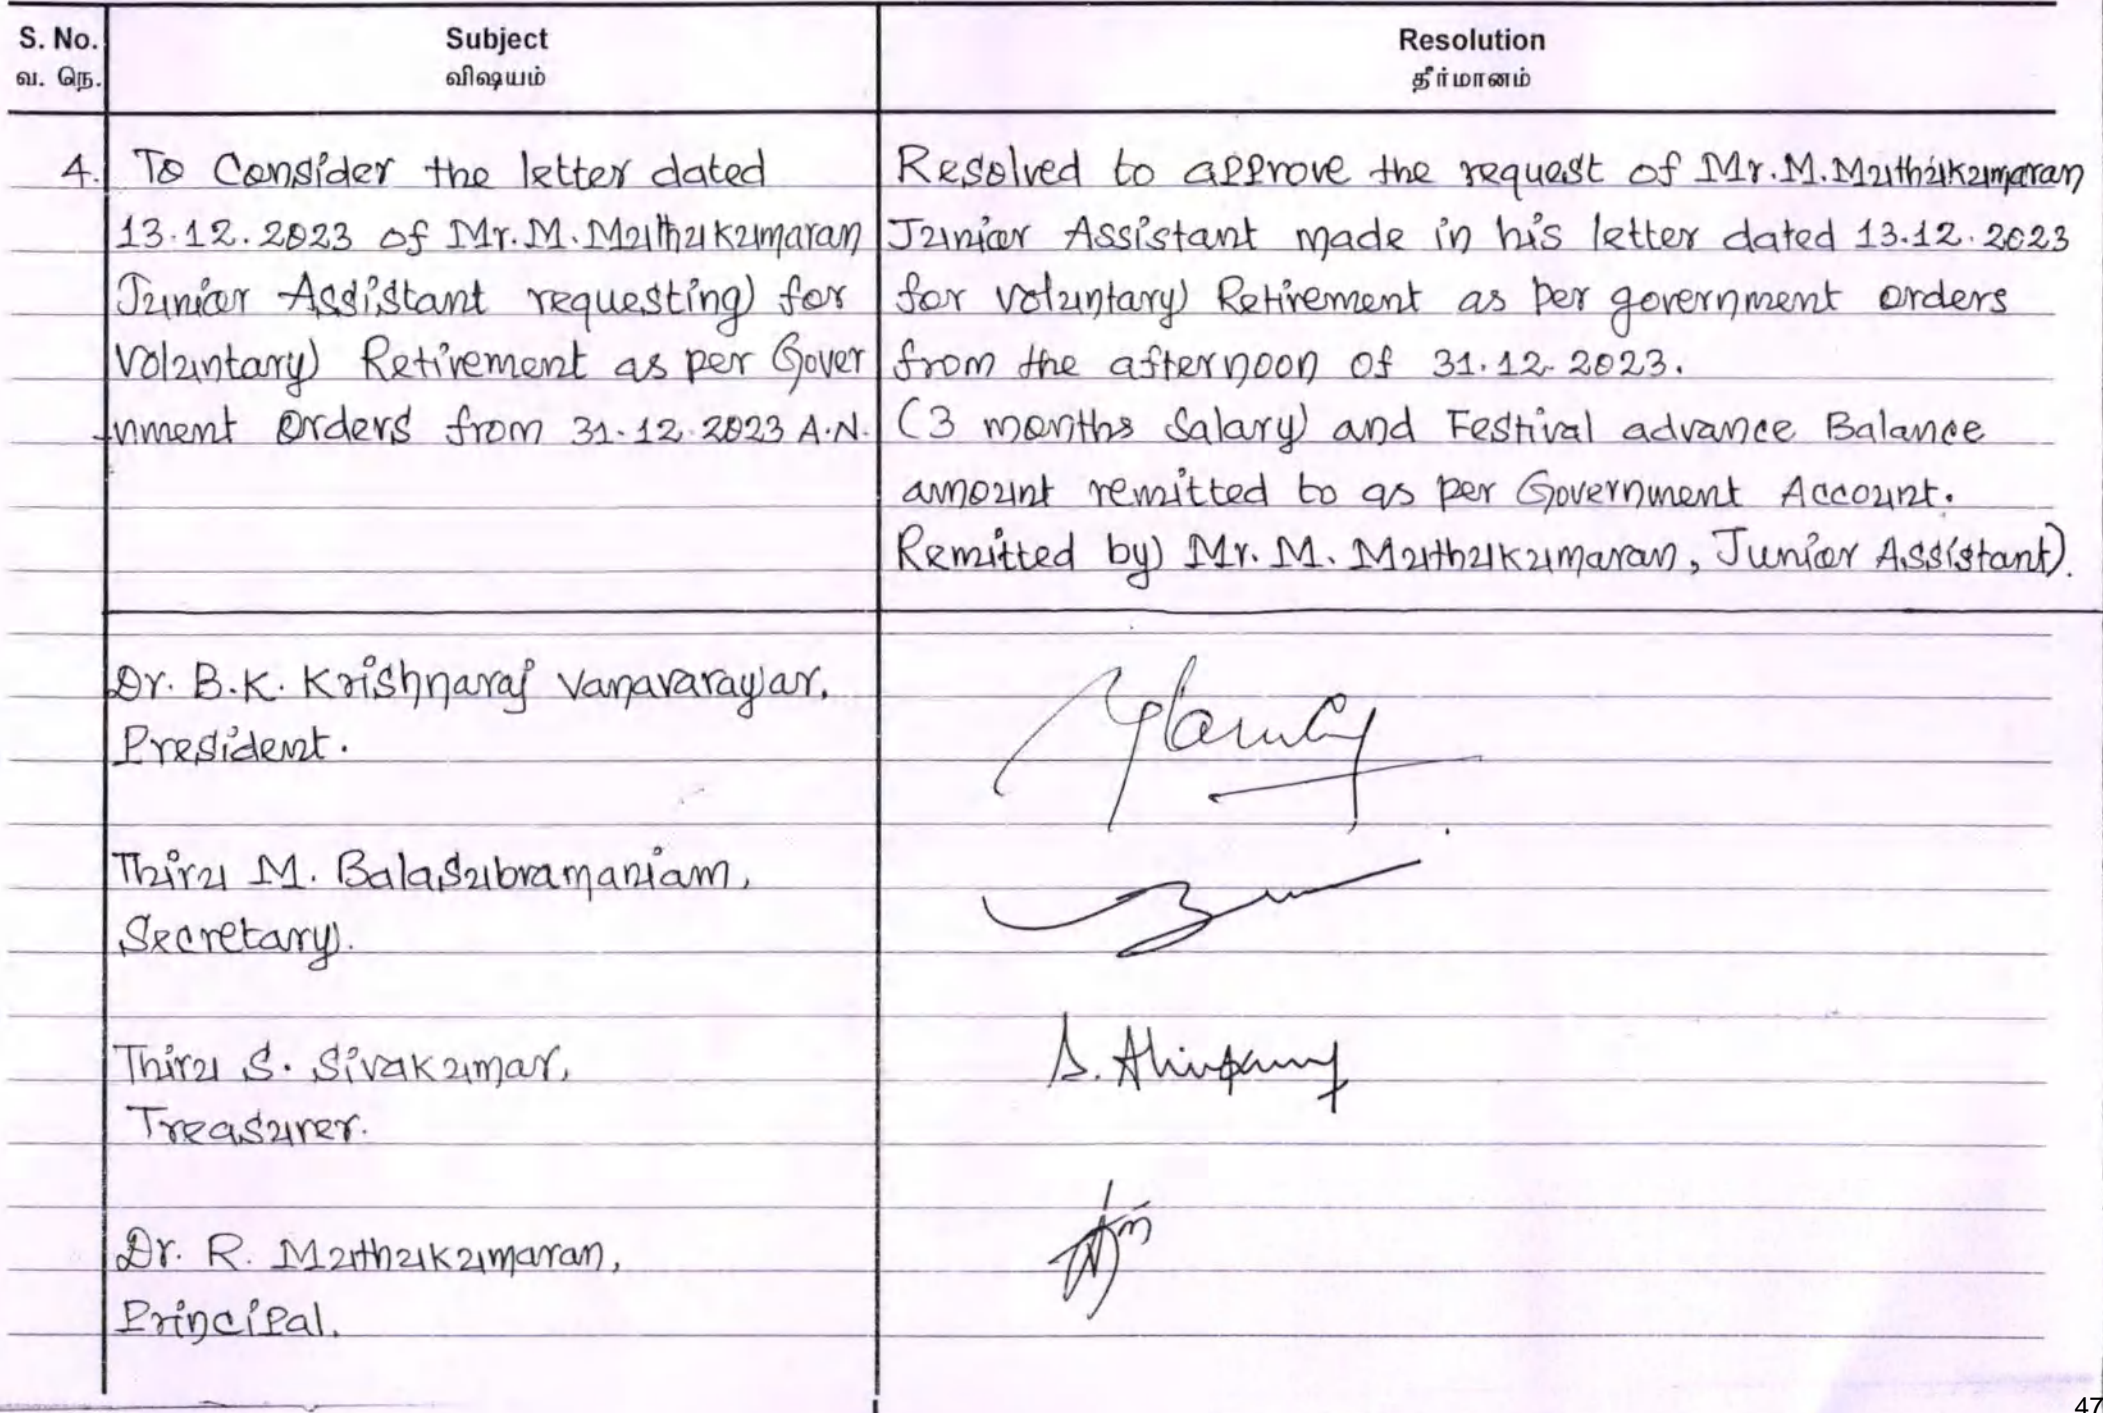 S. No. Subject Resolution
வ. நெ. விஷயம் தீர்மானம்
4. To Consider the letter dated
13.12.2023 of Mr.M.Muthukumaran
Junior Assistant requesting for
Voluntary Retirement as per Gover
nment Orders from 31.12.2023 A.N.
Resolved to approve the request of Mr.M.Muthukumaran
Junior Assistant made in his letter dated 13.12.2023
for voluntary Retirement as per government orders
from the afternoon of 31.12.2023.
(3 months Salary and Festival advance Balance
amount remitted to as per Government Account.
Remitted by Mr. M. Muthukumaran, Junior Assistant).
Dr. B.K. Krishnaraj Vanavarayar,
President.
Thiru M. Balasubramaniam,
Secretary.
Thiru S. Sivakumar,
Treasurer.
Dr. R. Muthukumaran,
Principal.
47